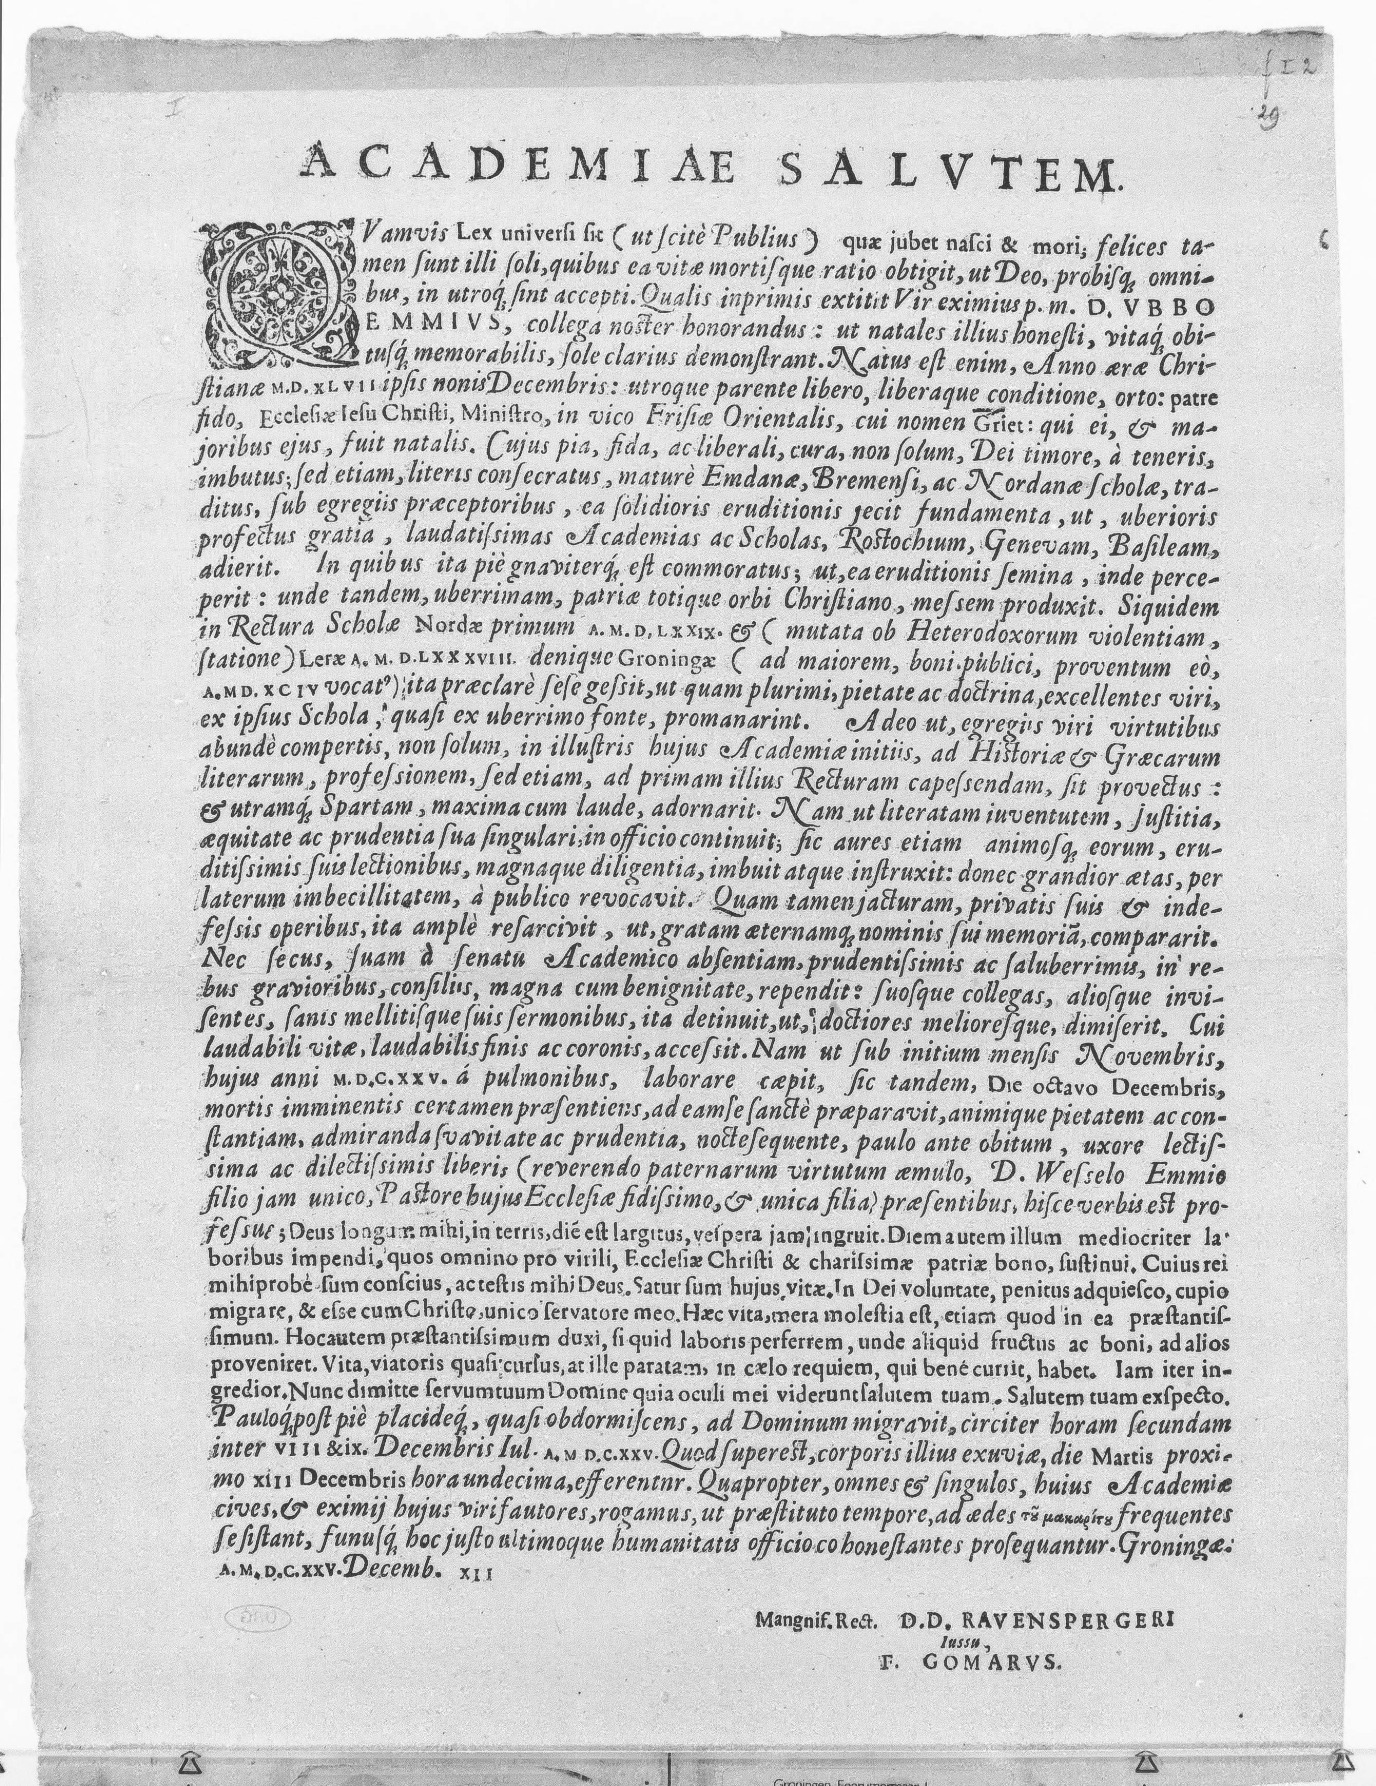 f I 2
29
I
6
ACADEMIAE SALVTEM.
QVamvis Lex universi sit (ut scitè Publius) quæ jubet nasci & mori; felices ta-
men sunt illi soli, quibus ea vitæ mortisque ratio obtigit, ut Deo, probisq́; omni-
bus, in utroq́; sint accepti. Qualis inprimis extitit Vir eximius p. m. D. VBBO
EMMIVS, collega noster honorandus: ut natales illius honesti, vitaq́; obi-
tusq́; memorabilis, sole clarius demonstrant. Natus est enim, Anno æræ Chri-
stianæ M.D. XLVII ipsis nonis Decembris: utroque parente libero, liberaque conditione, orto: patre
fido, Ecclesiæ Iesu Christi, Ministro, in vico Frisiæ Orientalis, cui nomen Griet: qui ei, & ma-
joribus ejus, fuit natalis. Cujus pia, fida, ac liberali, cura, non solum, Dei timore, à teneris,
imbutus; sed etiam, literis consecratus, maturè Emdanæ, Bremensi, ac Nordanæ scholæ, tra-
ditus, sub egregiis præceptoribus, ea solidioris eruditionis jecit fundamenta, ut, uberioris
profectus gratia, laudatissimas Academias ac Scholas, Rostochium, Genevam, Basileam,
adierit. In quibus ita piè gnaviterq́; est commoratus; ut, ea eruditionis semina, inde perce-
perit: unde tandem, uberrimam, patriæ totique orbi Christiano, messem produxit. Siquidem
in Rectura Scholæ Nordæ primum A. M. D. LXXIX. & ( mutata ob Heterodoxorum violentiam,
statione) Leræ A. M. D. LXXXVIII. denique Groningæ ( ad maiorem, boni publici, proventum eò,
A. MD. XCIV vocatꝰ) ita præclarè sese gessit, ut quam plurimi, pietate ac doctrina, excellentes viri,
ex ipsius Schola, quasi ex uberrimo fonte, promanarint. Adeo ut, egregiis viri virtutibus
abundè compertis, non solum, in illustris hujus Academiæ initiis, ad Historiæ & Græcarum
literarum, professionem, sed etiam, ad primam illius Recturam capessendam, sit provectus:
& utramq́; Spartam, maxima cum laude, adornarit. Nam ut literatam iuventutem, justitia,
æquitate ac prudentia sua singulari, in officio continuit; sic aures etiam animosq́; eorum, eru-
ditissimis suis lectionibus, magnaque diligentia, imbuit atque instruxit: donec grandior ætas, per
laterum imbecillitatem, à publico revocavit. Quam tamen jacturam, privatis suis & inde-
fessis operibus, ita amplè resarcivit, ut, gratam æternamq́; nominis sui memoriā, compararit.
Nec secus, suam à senatu Academico absentiam, prudentissimis ac saluberrimis, in re-
bus gravioribus, consiliis, magna cum benignitate, rependit: suosque collegas, aliosque invi-
sentes, sanis mellitisque suis sermonibus, ita detinuit, ut, doctiores melioresque, dimiserit. Cui
laudabili vitæ, laudabilis finis ac coronis, accessit. Nam ut sub initium mensis Novembris,
hujus anni M.D.C.XXV. á pulmonibus, laborare cæpit, sic tandem, Die octavo Decembris,
mortis imminentis certamen præsentiens, ad eam se sanctè præparavit, animique pietatem ac con-
stantiam, admiranda svavitate ac prudentia, nocte sequente, paulo ante obitum, uxore lectis-
sima ac dilectissimis liberis (reverendo paternarum virtutum æmulo, D. Wesselo Emmio
filio jam unico, Pastore hujus Ecclesiæ fidissimo, & unica filia) præsentibus, hisce verbis est pro-
fessus; Deus longum mihi, in terris, diē est largitus, vespera jam ingruit. Diem autem illum mediocriter la-
boribus impendi, quos omnino pro virili, Ecclesiæ Christi & charissimæ patriæ bono, sustinui. Cuius rei
mihi probè sum conscius, ac testis mihi Deus. Satur sum hujus vitæ. In Dei voluntate, penitus adquiesco, cupio
migrare, & esse cum Christo, unico servatore meo. Hæc vita, mera molestia est, etiam quod in ea præstantis-
simum. Hoc autem præstantissimum duxi, si quid laboris perferrem, unde aliquid fructus ac boni, ad alios
proveniret. Vita, viatoris quasi cursus, at ille paratam, in cælo requiem, qui benè currit, habet. Iam iter in-
gredior. Nunc dimitte servum tuum Domine quia oculi mei viderunt salutem tuam. Salutem tuam exspecto.
Pauloq́; post piè placideq́;, quasi obdormiscens, ad Dominum migravit, circiter horam secundam
inter VIII & ix. Decembris Iul. A. M D.C.XXV. Quod superest, corporis illius exuviæ, die Martis proxi-
mo XIII Decembris hora undecima, efferentnr. Quapropter, omnes & singulos, huius Academiæ
cives, & eximij hujus viri fautores, rogamus, ut præstituto tempore, ad ædes τȣ͂ μακαρίτȣ frequentes
se sistant, funusq́; hoc justo ultimoque humanitatis officio cohonestantes prosequantur. Groningæ:
A. M. D.C.XXV. Decemb. XII
Mangnif. Rect. D.D. RAVENSPERGERI
Iussu,
F. GOMARVS.